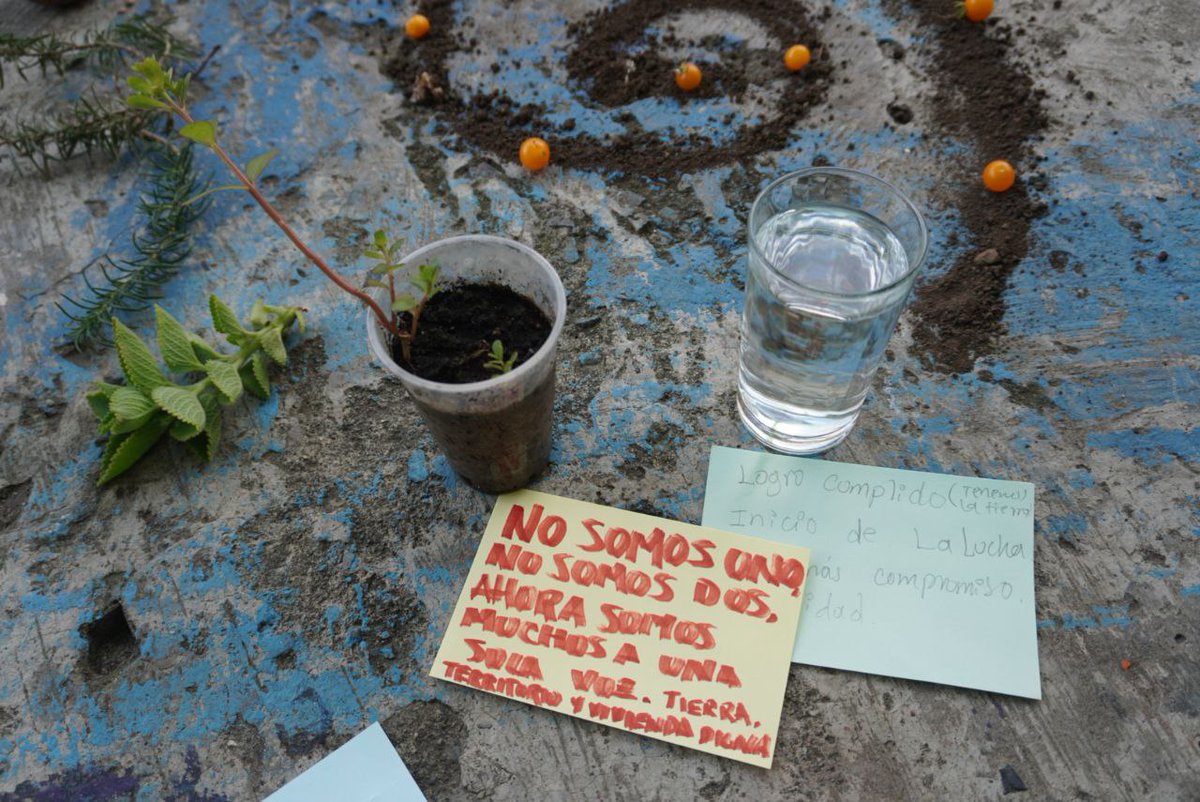 NO SOMOS UNO,
NO SOMOS DOS,
AHORA SOMOS
MUCHOS A UNA
SOLA VOZ. TIERRA,
TERRITORIO Y VIVIENDA DIGNA
Logro complido (Tenemos
la tierra
Inicio de La Lucha
más compromiso.
idad